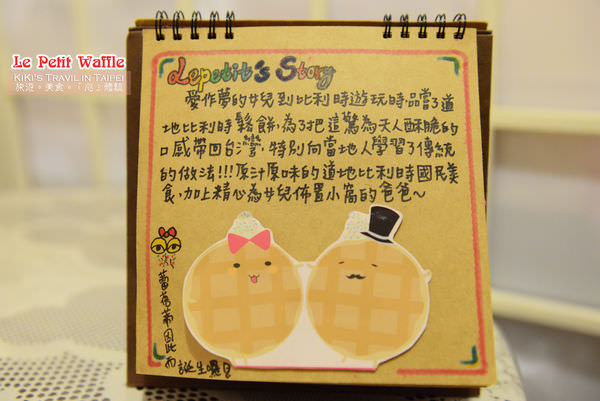 Le Petit Waffle
KIKI's TRAVIL IN TAIPEI
旅遊。美食。「庭」體驗
Lepetit's Story
愛作夢的女兒到比利時遊玩時,品嚐了道
地比利時鬆餅,為了把這驚為天人酥脆的
口感帶回台灣,特別向當地人學習了傳統
的做法!!!原汁原味的道地比利時國民美
食,加上精心為女兒佈置小窩的爸爸~
蕾蓓蒂因此而
誕生囉!